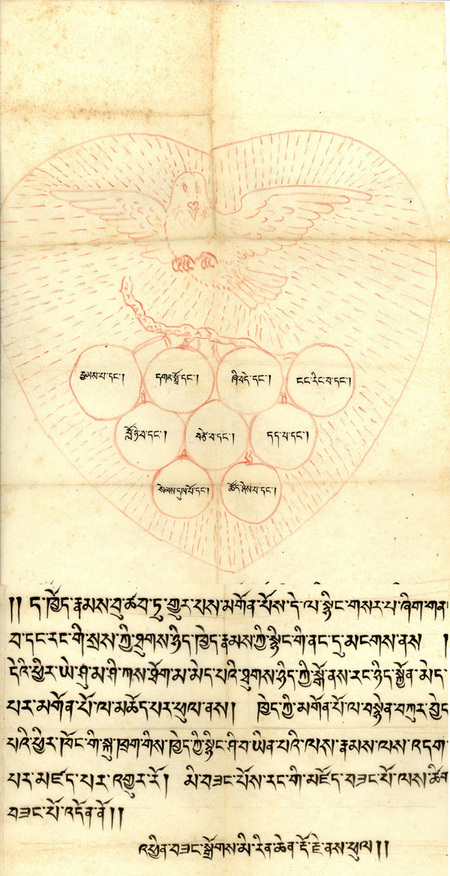 བྱམས་པ་དང་། དགའ་སྤྲོ་དང་། ཞི་བདེ་དང་། ངང་རིང་བ་དང་།
བློ་ཉེ་བ་དང་། བརྩེ་བ་དང་། དད་པ་དང་།
སེམས་དུལ་པོ་དང་། ཚོད་ཤེས་པ་དང་།
།། ད་ཁྱེད་རྣམས་བུ་ཚབ་ཏུ་གྱུར་པས་མགོན་པོས་དེ་ལ་སྙིང་གསར་པ་ཞིག་གནང་
བ་དང་རང་གི་སྲས་ཀྱི་ཐུགས་ཉིད་ཁྱེད་རྣམས་ཀྱི་སྙིང་གི་ནང་དུ་མངགས་ནས །
དེའི་ཕྱིར་ཡེ་ཤུ་མ་ཤི་ཀས་ཐོག་མ་མེད་པའི་ཐུགས་ཉིད་ཀྱི་སྒོ་ནས་རང་ཉིད་སྐྱོན་མེད་
པར་མགོན་པོ་ལ་མཆོད་པར་ཕུལ་ནས། ཁྱེད་ཀྱི་མགོན་པོ་ལ་བསྙེན་བཀུར་བྱེད་
པའི་ཕྱིར་ཁོང་གི་སྐུ་ཁྲག་གིས་ཁྱེད་ཀྱི་སྙིང་ཤི་བ་ཡིན་པའི་ལས་རྣམས་ལས་འདག་
པར་མཛད་པར་འགྱུར་རོ། མི་བཟང་པོས་རང་གི་མཛོད་བཟང་པོ་ལས་ཚིག་
བཟང་པོ་འདོན་ནོ།།
འཕྲིན་བཟང་སྒྲོགས་མི་རིན་ཆེན་རྡོ་རྗེ་ནས་ཕུལ།།